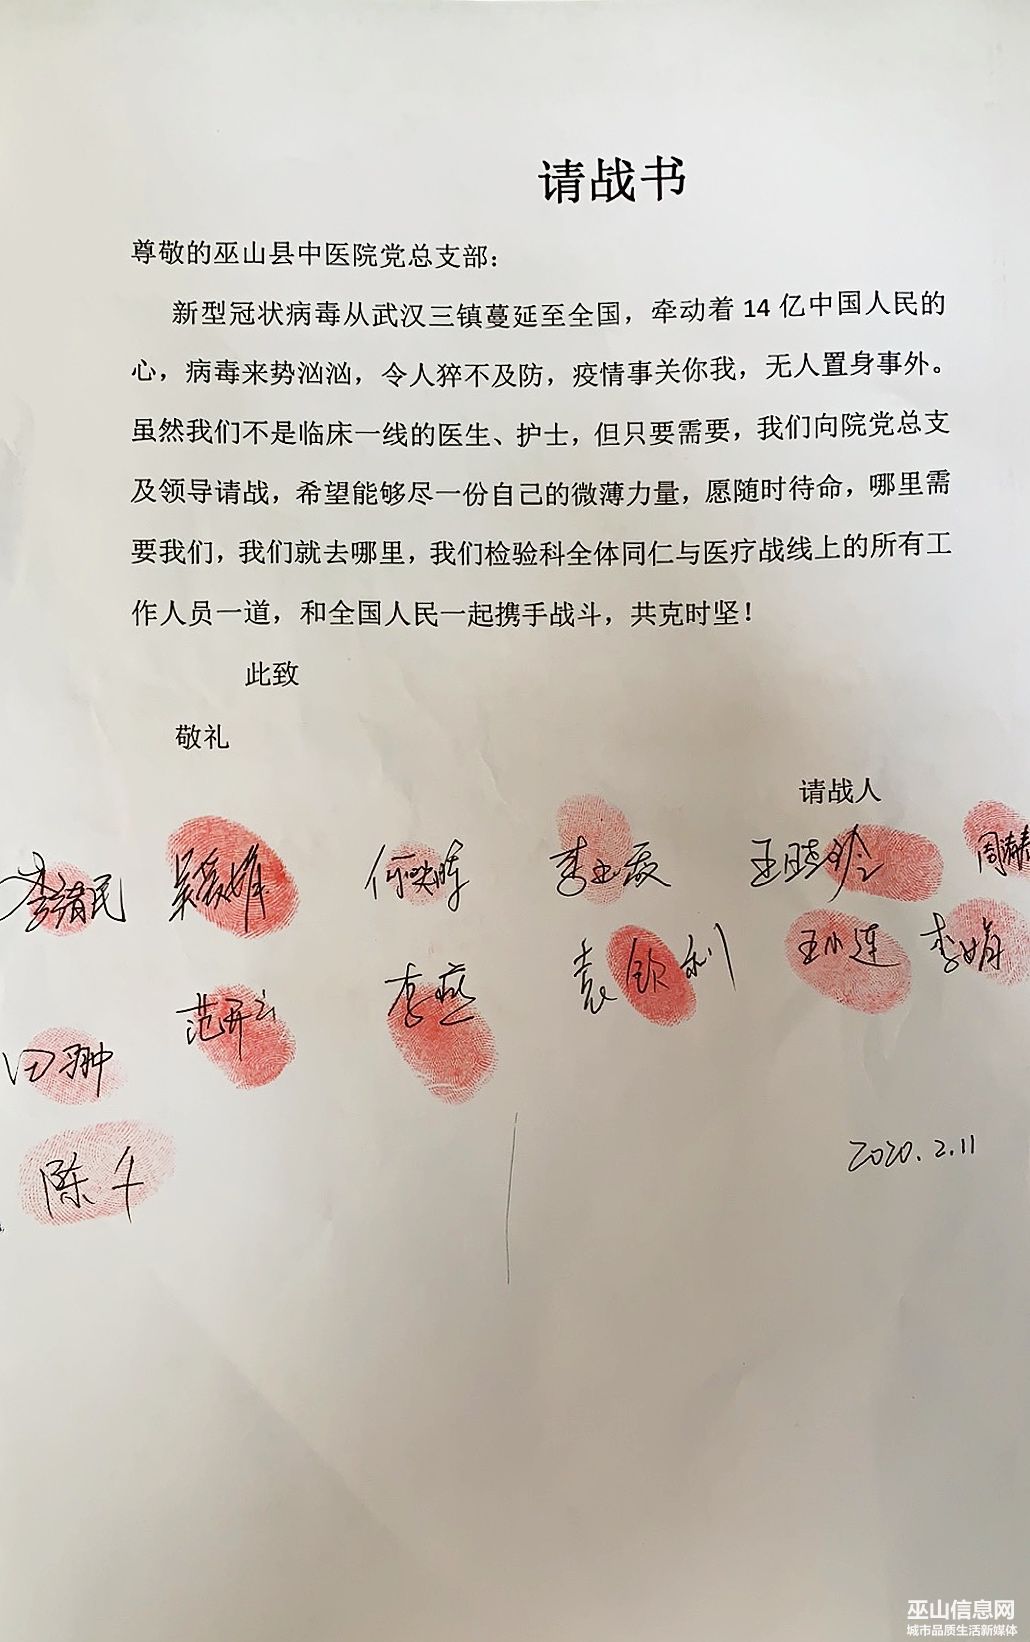 请战书
尊敬的巫山县中医院党总支部：
新型冠状病毒从武汉三镇蔓延至全国，牵动着 14 亿中国人民的
心，病毒来势汹汹，令人猝不及防，疫情事关你我，无人置身事外。
虽然我们不是临床一线的医生、护士，但只要需要，我们向院党总支
及领导请战，希望能够尽一份自己的微薄力量，愿随时待命，哪里需
要我们，我们就去哪里，我们检验科全体同仁与医疗战线上的所有工
作人员一道，和全国人民一起携手战斗，共克时坚！
此致
敬礼
请战人
李清民 何映晖 王晓玲
范开云 李燕 袁钦利 王小连 李娟
田翀
陈千
2020.2.11
巫山信息网
城市品质生活新媒体